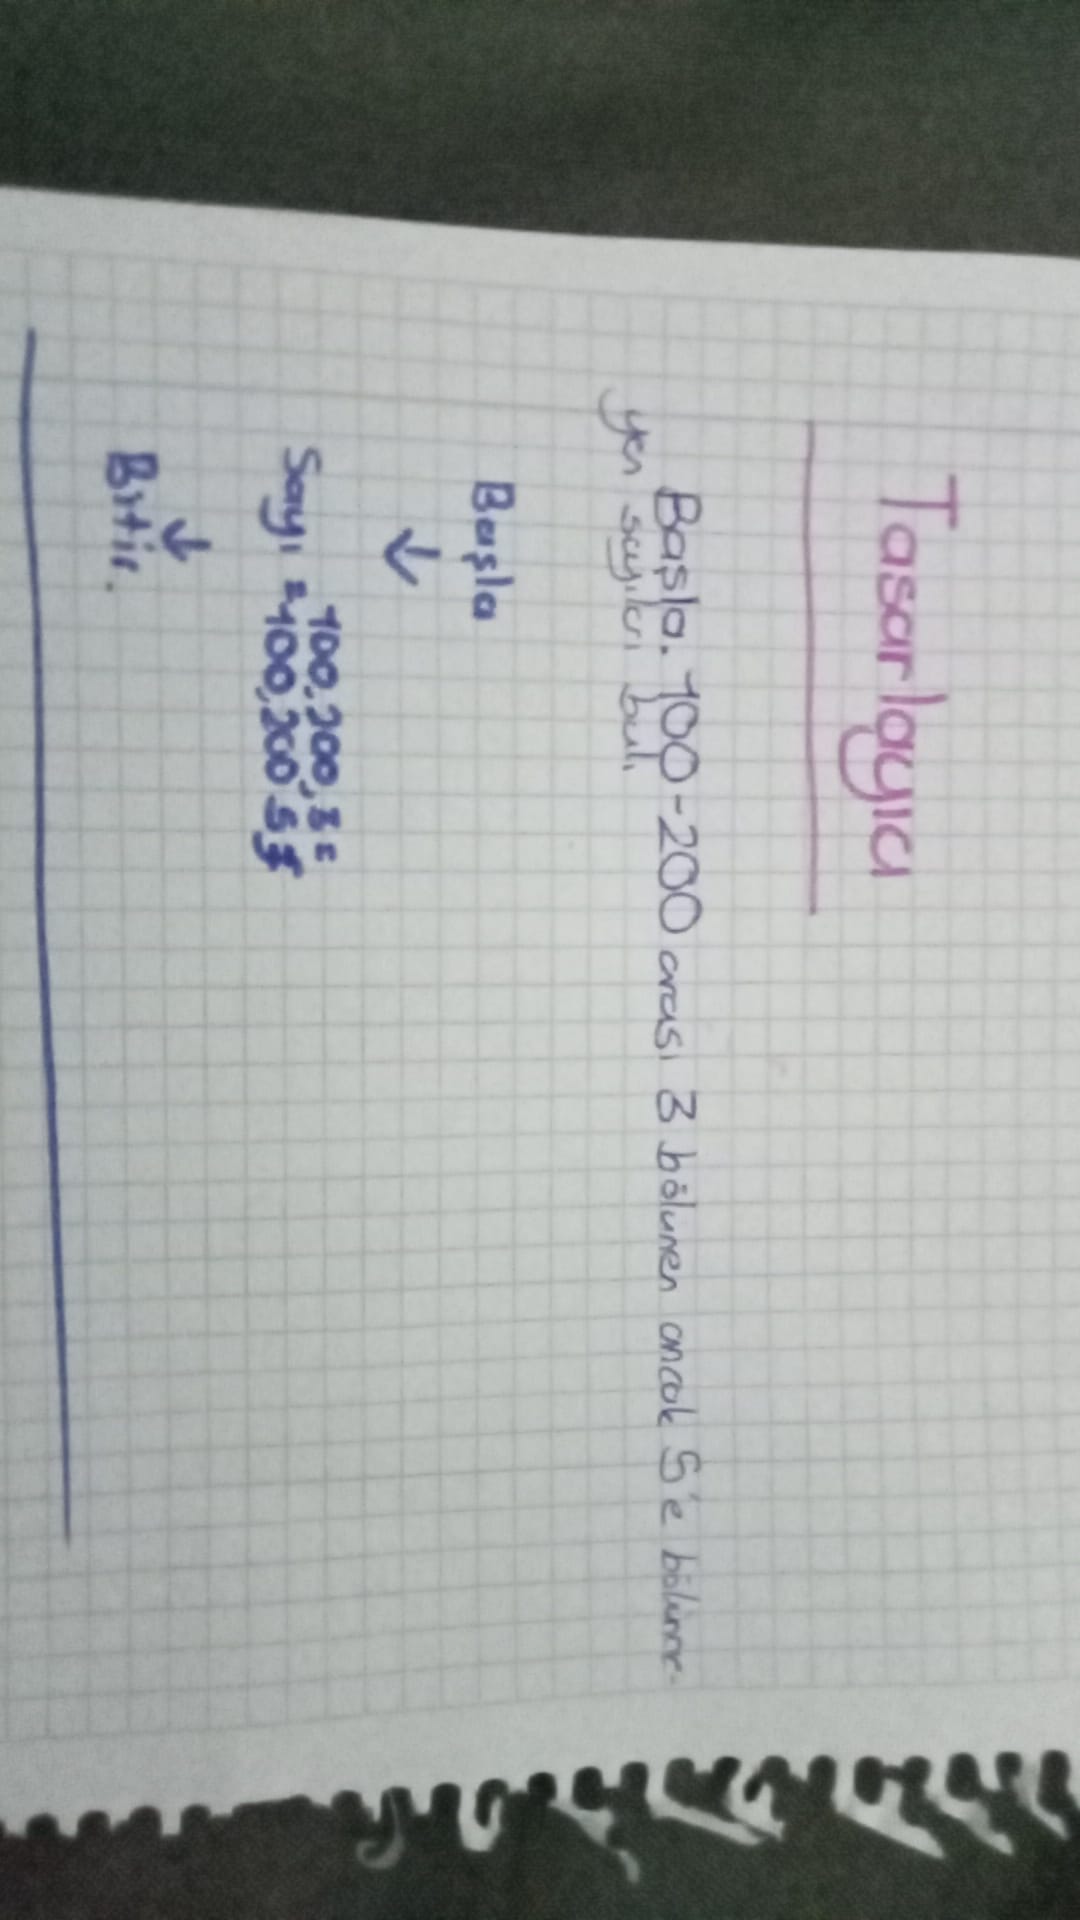 Tasarlayıcı
Başla. 100-200 arası 3 bölünen ancak 5'e bölünme-
yen sayıları bul.
Başla
↓
100,200,3=
Sayı =100,200 5
↓
Bitir.